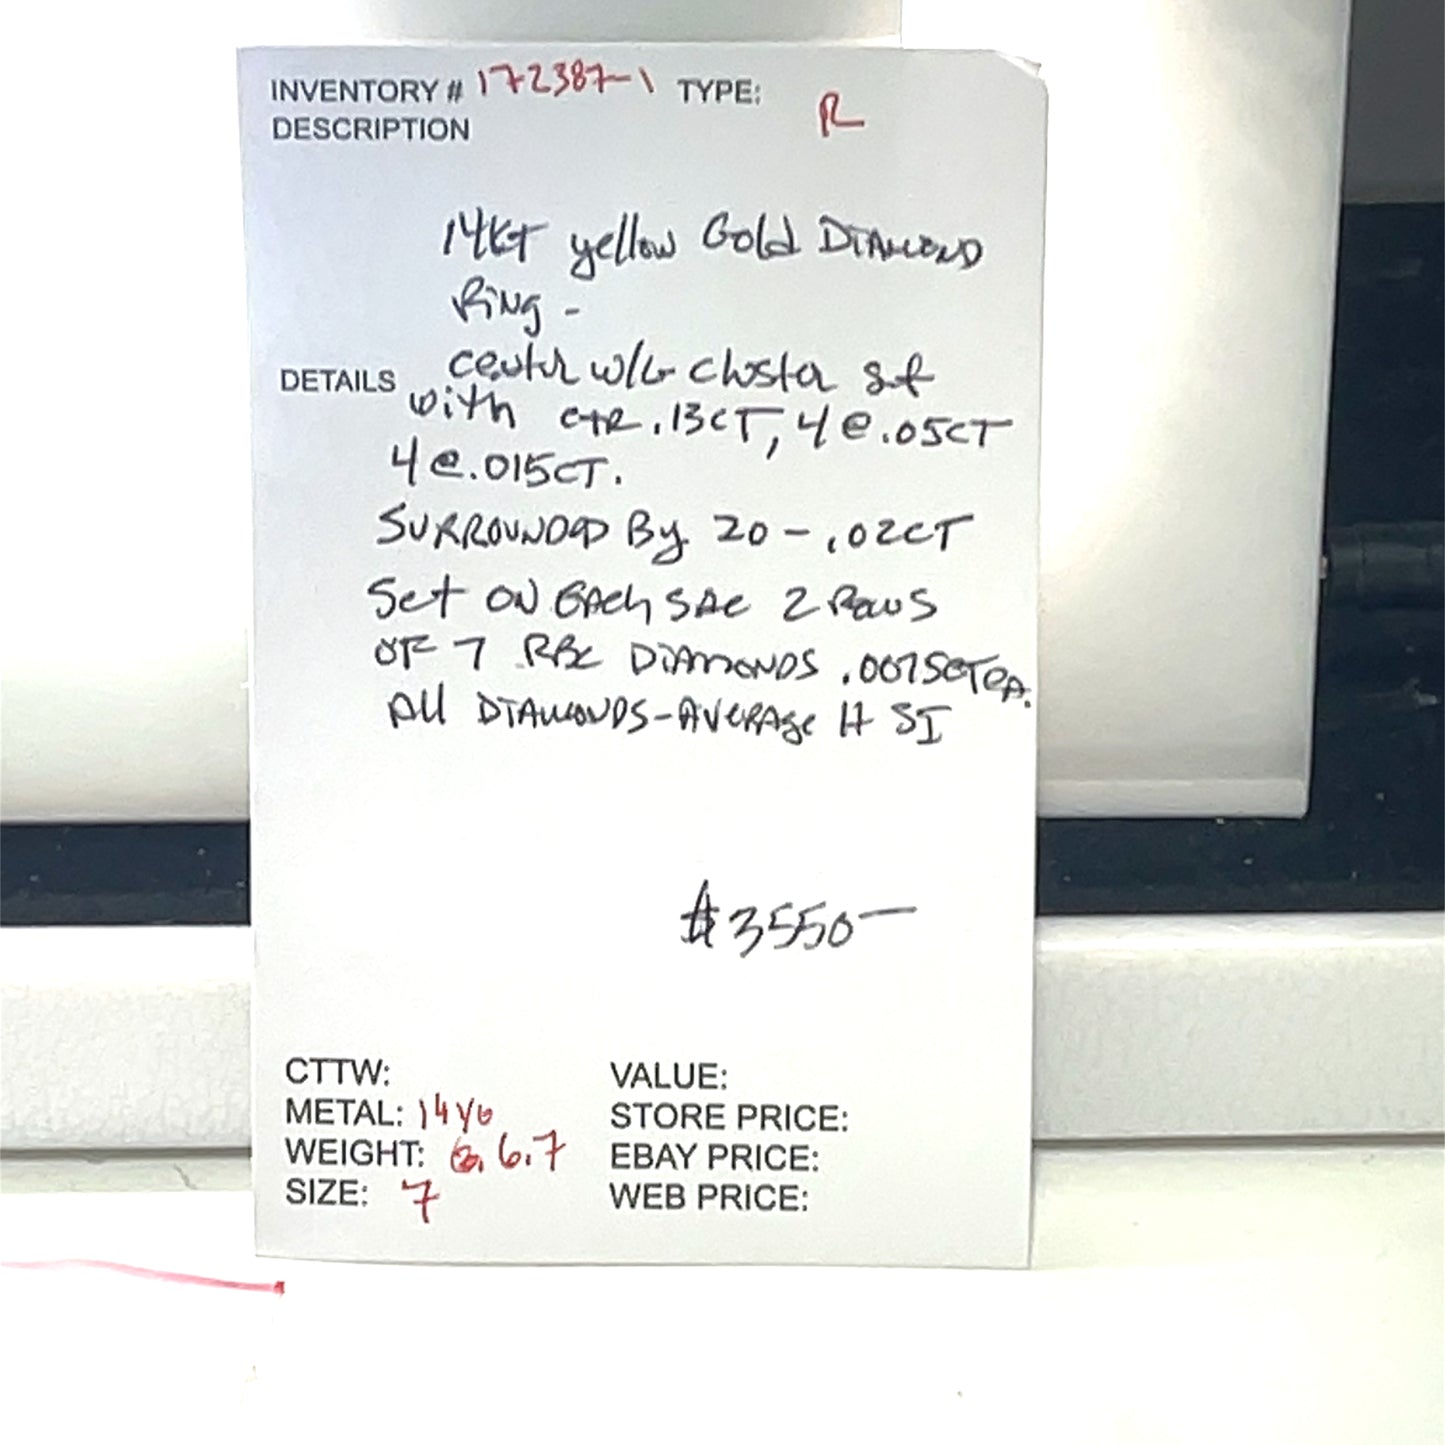 INVENTORY # 172387-1 TYPE: R
DESCRIPTION
14KT yellow Gold DIAMOND
Ring -
DETAILS center w/ cluster set
with ctR .13CT, 4 @ .05CT
4 @ .015CT.
SURROUNDED By 20 - .02CT
Set ON EACH SIDE 2 ROWS
OF 7 RBC DIAMONDS .0075CT eA.
All DIAMONDS - AVERAGE H SI
$3550-
CTTW: VALUE:
METAL: 14YG STORE PRICE:
WEIGHT: 6.7 EBAY PRICE:
SIZE: 7 WEB PRICE: